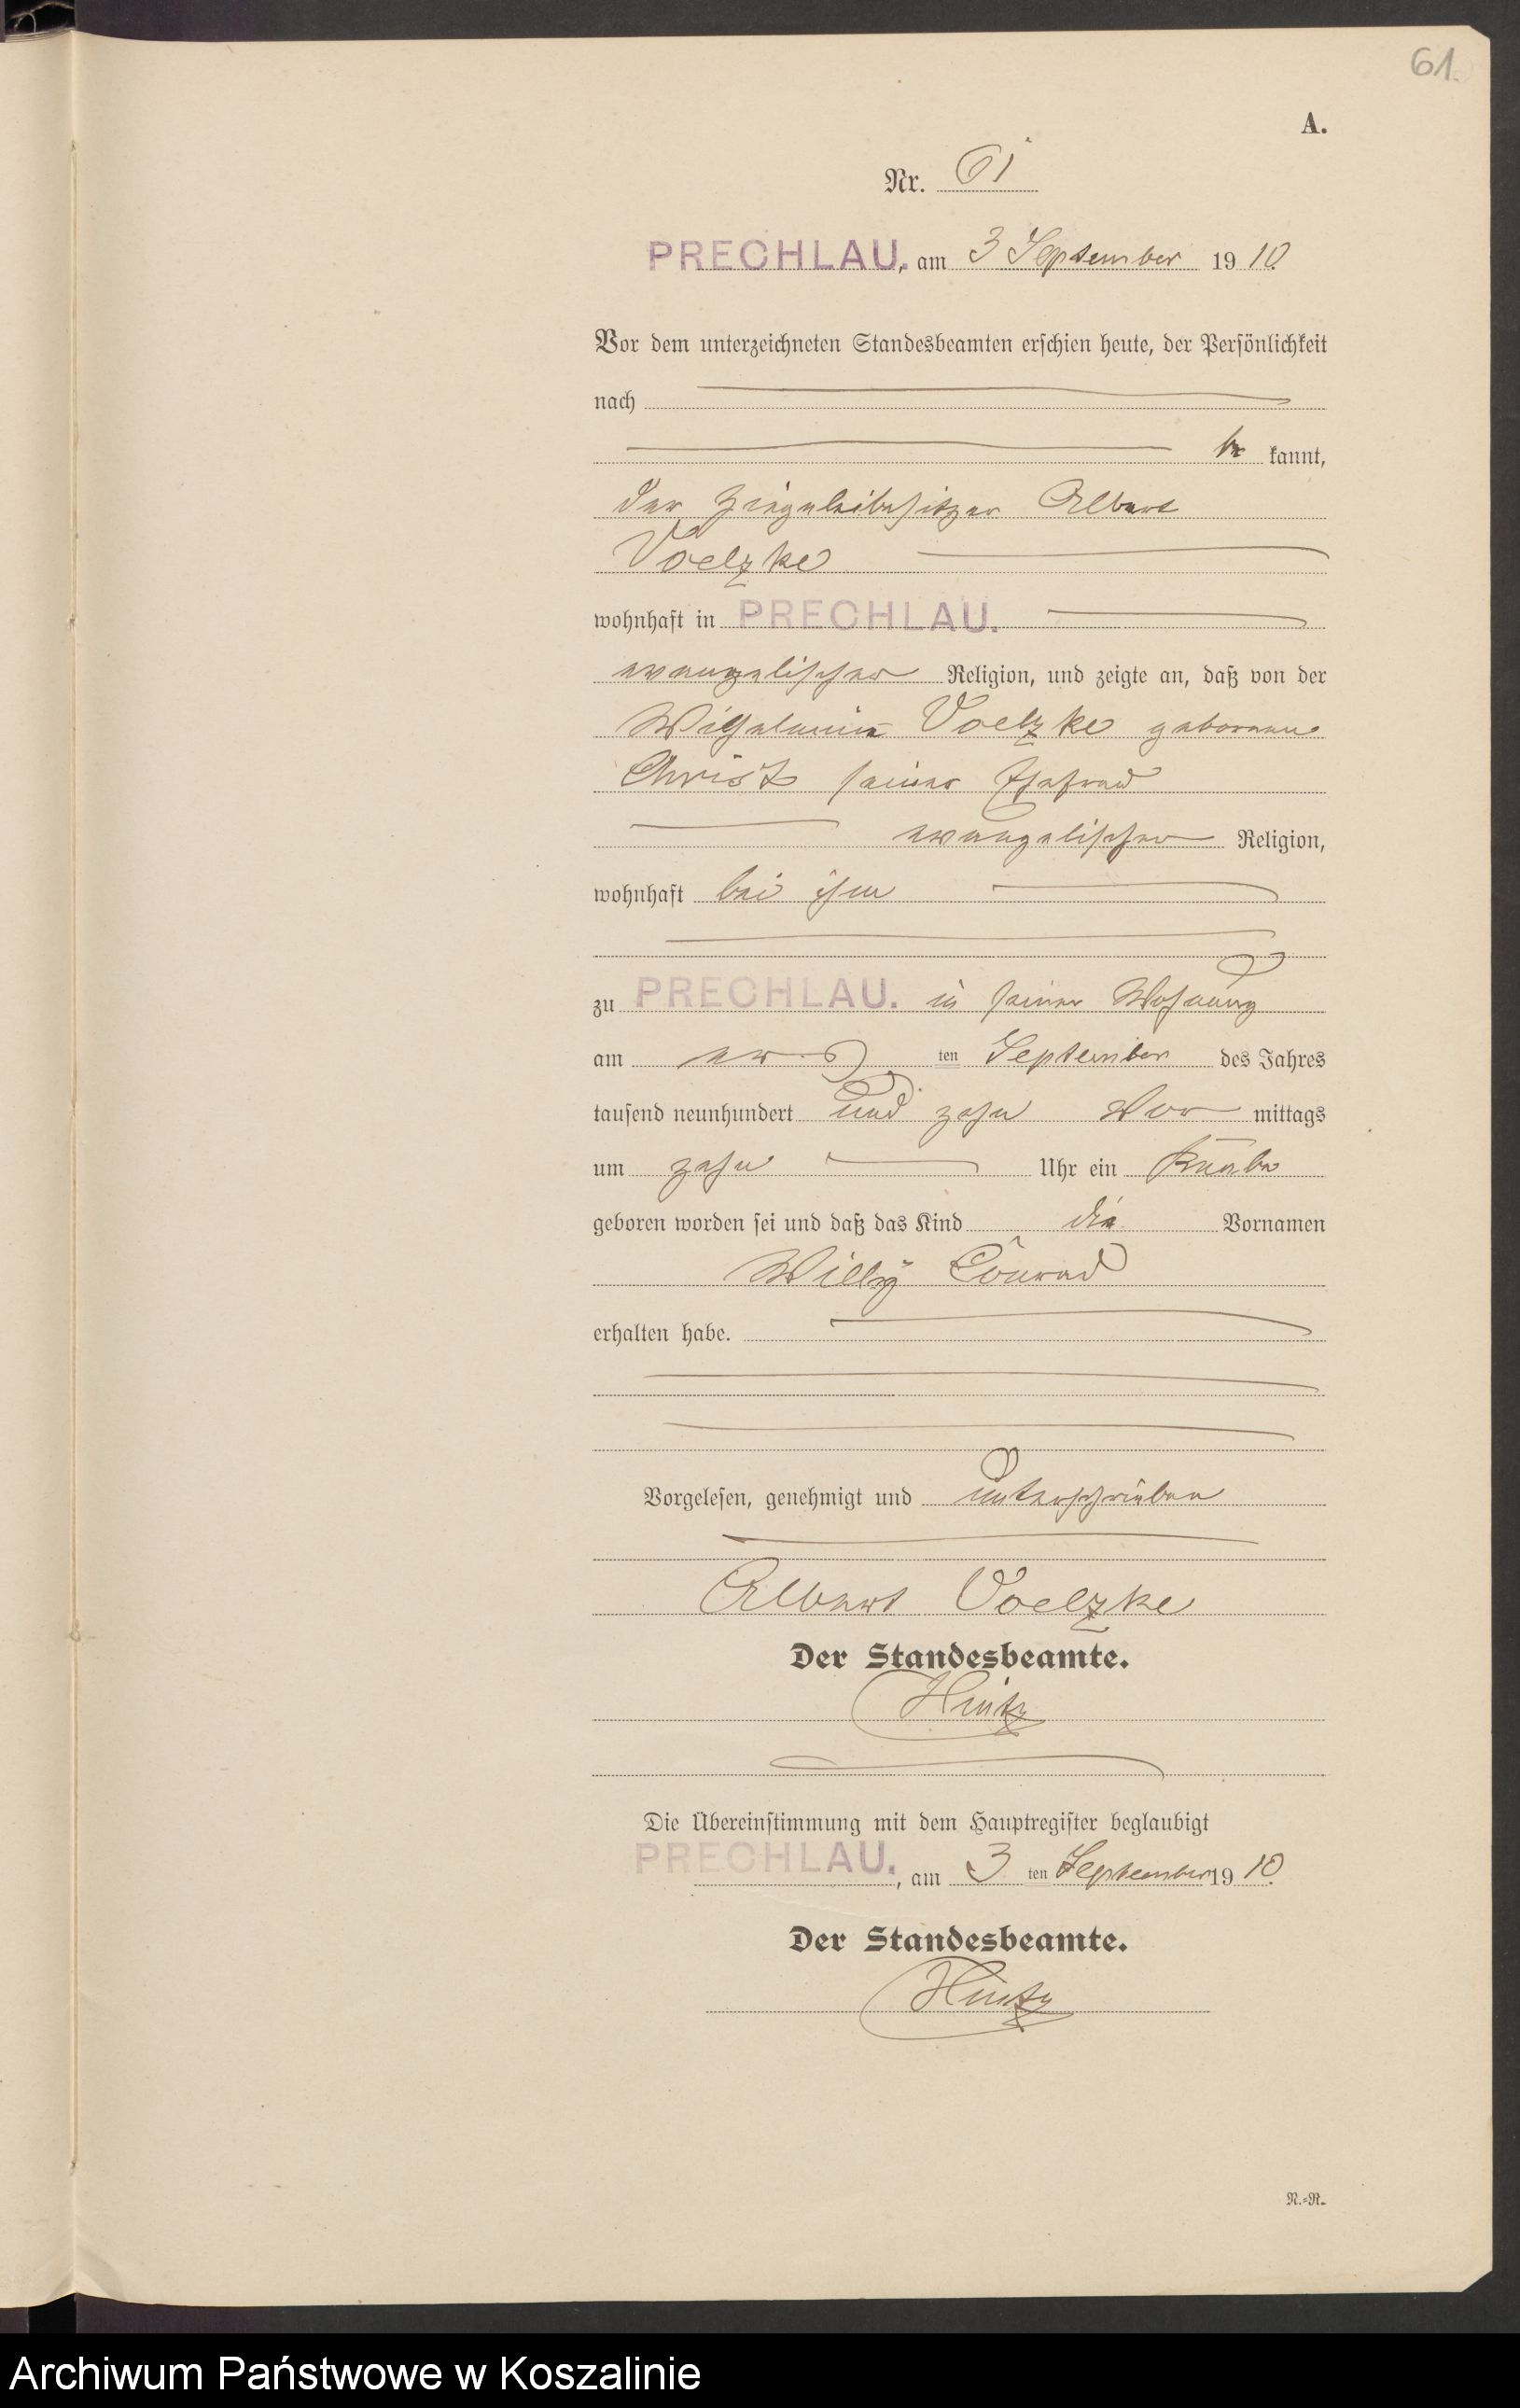 61.
A.
Nr. 61
PRECHLAU., am 3 September 1910.
Vor dem unterzeichneten Standesbeamten erschien heute, der Persönlichkeit
nach
be kannt,
der Ziegeleibesitzer Albert
Voelzke
wohnhaft in PRECHLAU.
evangelischer Religion, und zeigte an, daß von der
Wilhelmine Voelzke geborenen
Christ seiner Ehefrau
evangelischer Religion,
wohnhaft bei ihm
zu PRECHLAU. in seiner Wohnung
am ten September des Jahres
tausend neunhundert und zehn Vor mittags
um zehn Uhr ein Knabe
geboren worden sei und daß das Kind die Vornamen
Willy Conrad
erhalten habe.
Vorgelesen, genehmigt und unterschrieben
Albert Voelzke
Der Standesbeamte.
Hintz
Die Übereinstimmung mit dem Hauptregister beglaubigt
PRECHLAU., am 3 ten September 1910.
Der Standesbeamte.
Hintz
N.=R.
Archiwum Państwowe w Koszalinie